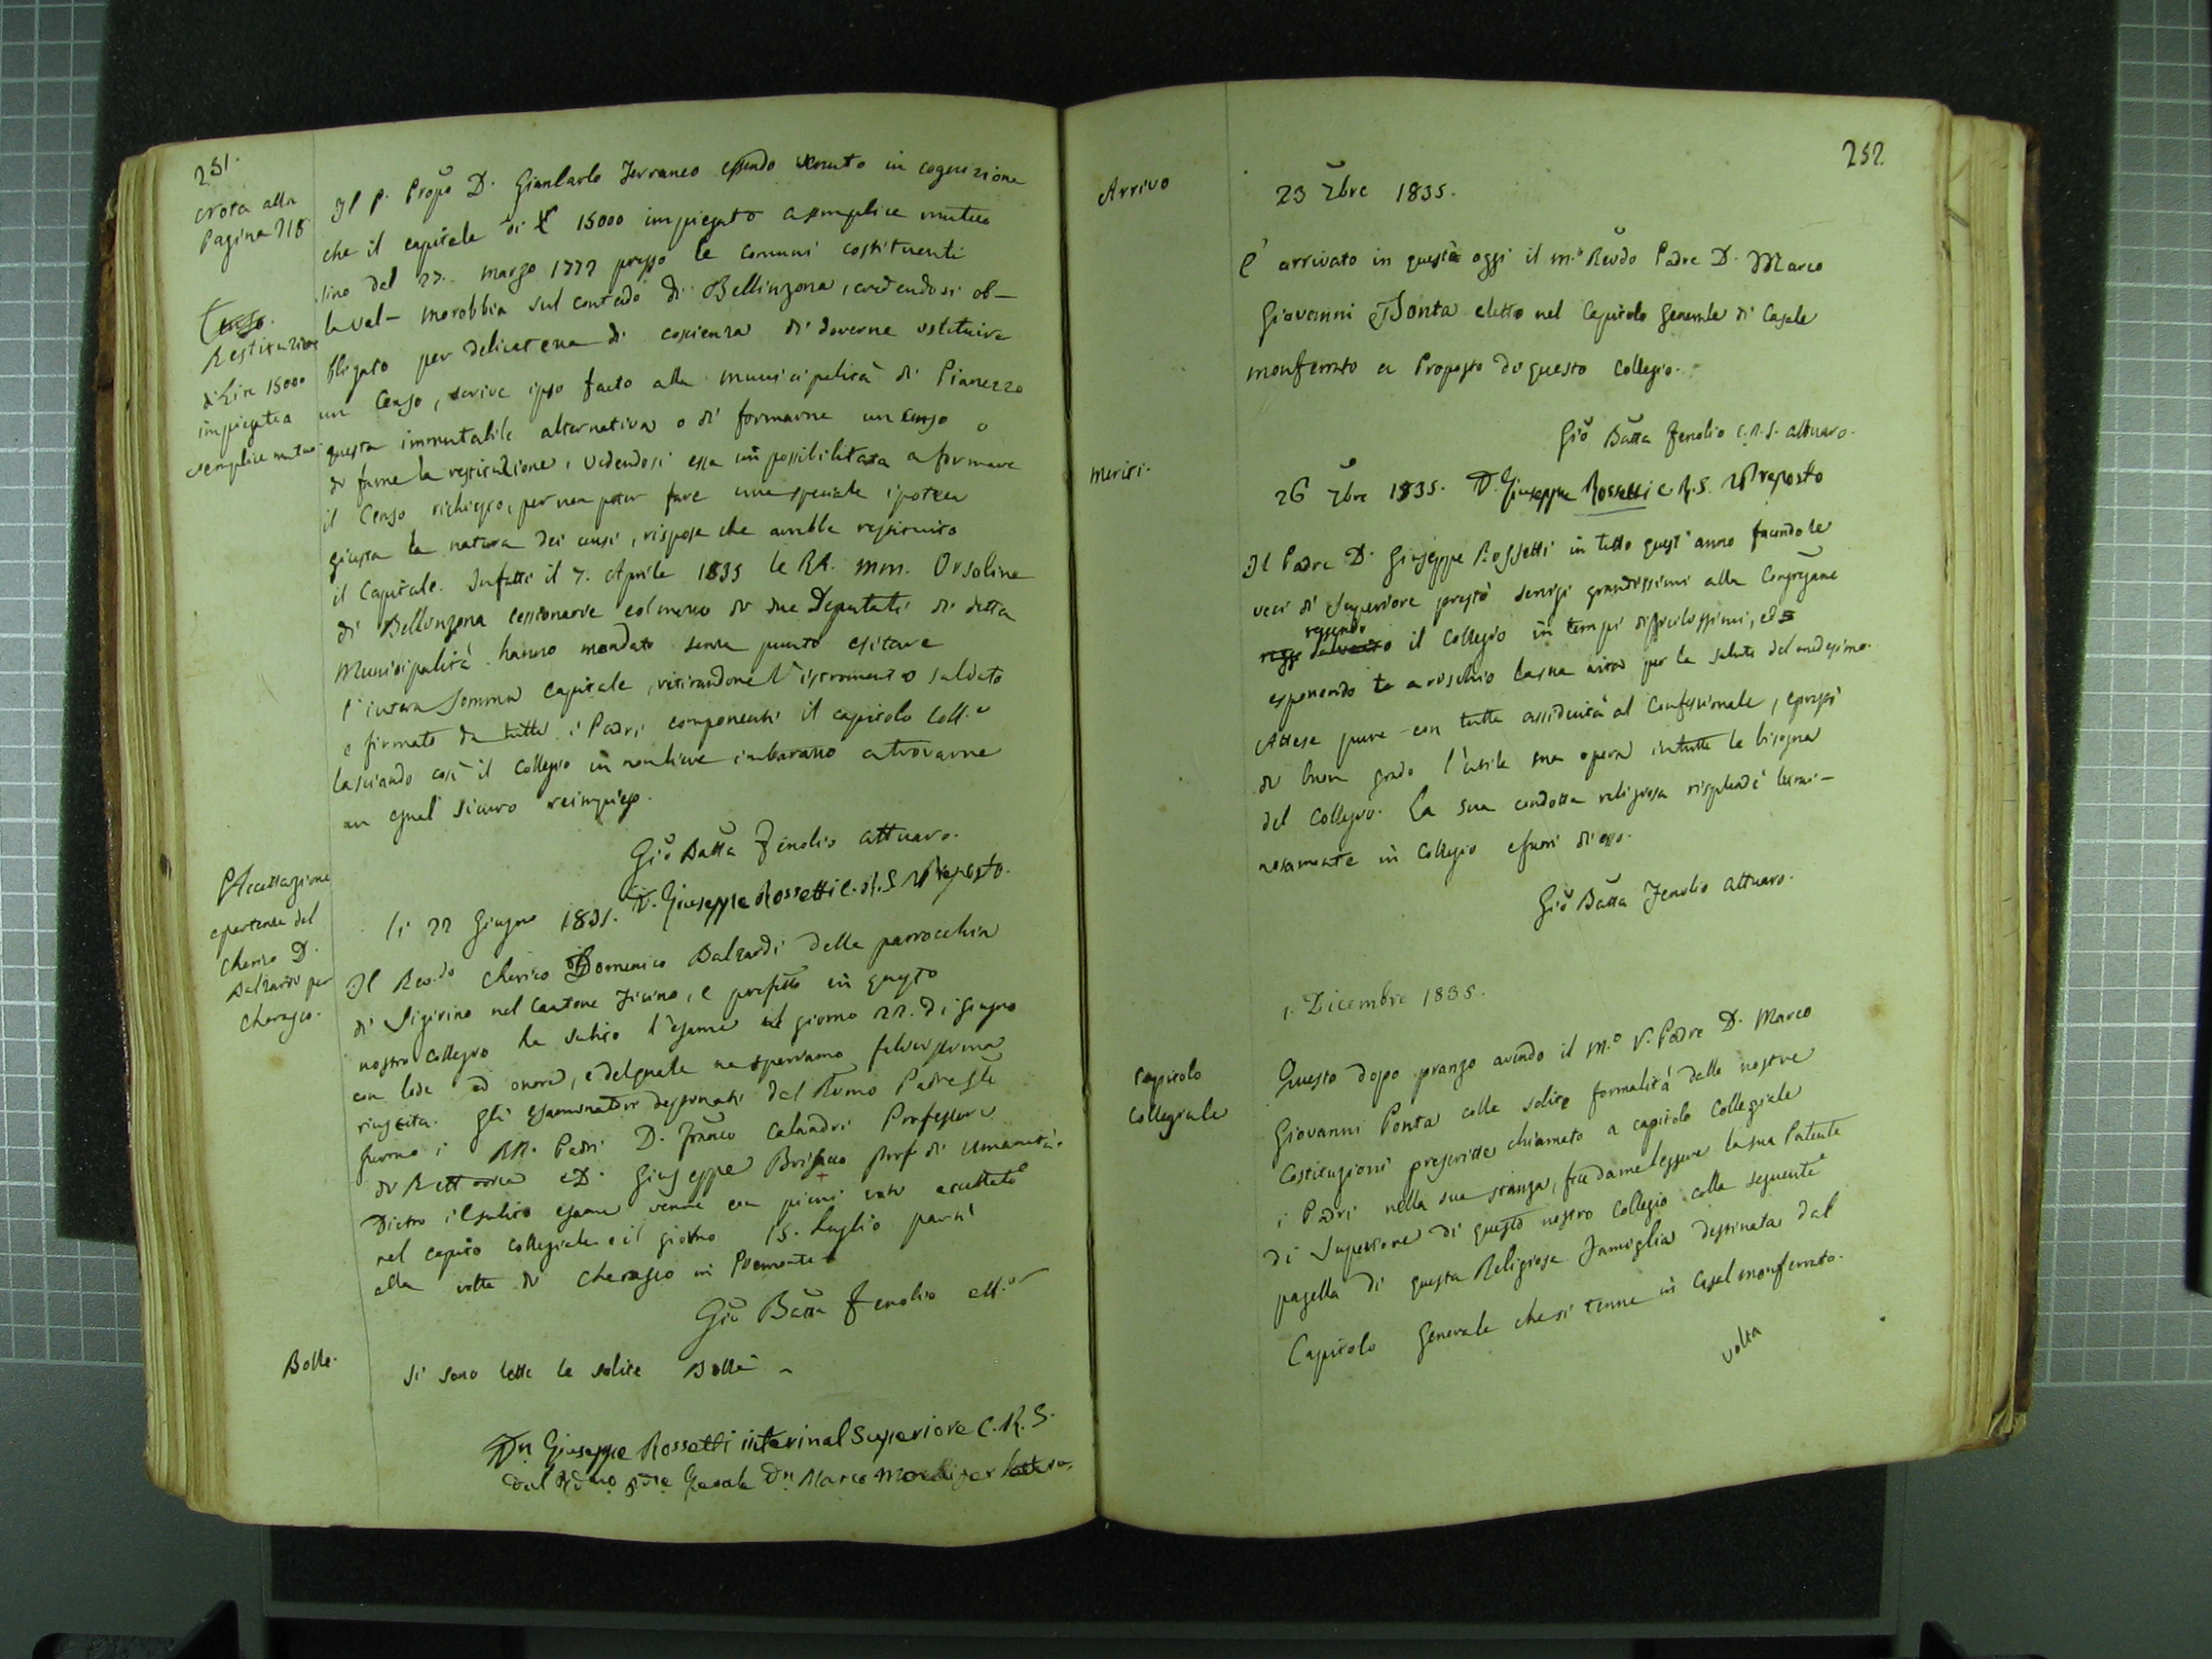 251.
Nota alla
Pagina 218
Il P. Propō D. Giancarlo Terraneo essendo venuto in cognizione
che il capitale di £ 15000 impiegato a semplice mutuo
sino dal 27. marzo 1772 presso le comuni costituenti
la val- morobbia sul contado di Bellinzona, credendosi ob-
bligato per delicatezza di coscienza di doverne ostituire
un Censo, scrive ipso facto alla municipalità di Pianezzo
questa immutabile alternativa o di formarne un censo o
di farne la restituzione, vedendosi essa impossibilitata a formare
il Censo richiesto, per non poter fare una speciale ipoteca
giusta la natura dei censi, rispose che avrebbe restituito
il Capitale. Infatti il 7. Aprile 1835 le RR. MM. Orsoline
di Bellinzona cessionarie col mezzo di due Deputati di detta
Municipalità hanno mandato senza punto esitare
l'intera somma capitale, ritirandone l'istromento saldato
e firmato da tutti i Padri componenti il capitolo Coll.e
lasciando così il Collegio in non lieve imbarazzo a trovarne
un egual sicuro reimpiego.
Censo.
Restituzione
di Lire 15000
impiegate a
semplice mutuo
Giō Batta Fenolio attuaro.
D. Giuseppe Rossetti C. R. S. VPreposto.
Accettazione
e partenza del
Cherico D.
Balzardi per
Cherasco.
li 22 Giugno 1835.
Il Rev.do Cherico Domenico Balzardi della parrocchia
di Sigirino nel Cantone Ticino, e prefetto in questo
nostro Collegio ha subito l'esame il giorno 22. di giugno
con lode ed onore, e del quale ne speriamo felicissima
riuscita. Gli esaminatori destinati dal Rv̄mo Padre Gn̄le
furono i RR. Padri D. Franco Calandri Professore
di Rettorica e D. Giuseppe Prof di Umanità.
Dietro il subito esame venne con pieni voti accettato
nel capito collegiale e il giorno 15. Luglio partì
alla volta di Cherasco in Piemonte
Giō Batta Fenolio att.o
Bolle.
Si sono lette le solite Bolle -
Dn Giuseppe Rossetti interinal Superiore C. R. S.
dal Rd̄mo pd̄re Gn̄rale Dn Marco
252
Arrivo
23 9bre 1835.
È arrivato in quest'oggi il m.o Revdo Padre D. Marco
Giovanni Ponta eletto nel Capitolo Generale di Casale
monferrato a Proposto di questo Collegio.
Giō Batta Fenolio C.R.S. attuaro.
Meriti.
26 9bre 1835. D. Giuseppe Rossetti C. R. S. VPreposto
Il Padre D. Giuseppe Rossetti in tutto quest'anno facendo le
veci di Superiore prestò servigi grandissimi alla Congregāne
reggendo il Collegio in tempi difficilissimi, ed
esponendo a rischio la sua vita per la salute del medesimo.
Attese pure con tutta assiduità al Confessionale, e prestò
di buon grado l'utile sua opera in tutte le bisogna
del Collegio. La sua condotta religiosa risplendè lumi-
nosamente in Collegio e fuori di esso.
Giō Batta Fenolio attuaro.
1. Dicembre 1835.
Capitolo
Collegiale
Questo dopo pranzo avendo il m.o V. Padre D. Marco
Giovanni Ponta colle solite formalità dalle nostre
Costituzioni prescritte chiamato a capitolo Collegiale
i Padri nella sua stanza, fece da me leggere la sua Patente
di Superiore di questo nostro Collegio colla seguente
pagella di questa Religiosa Famiglia destinata dal
Capitolo Generale che si tenne in Casal monferrato.
volta